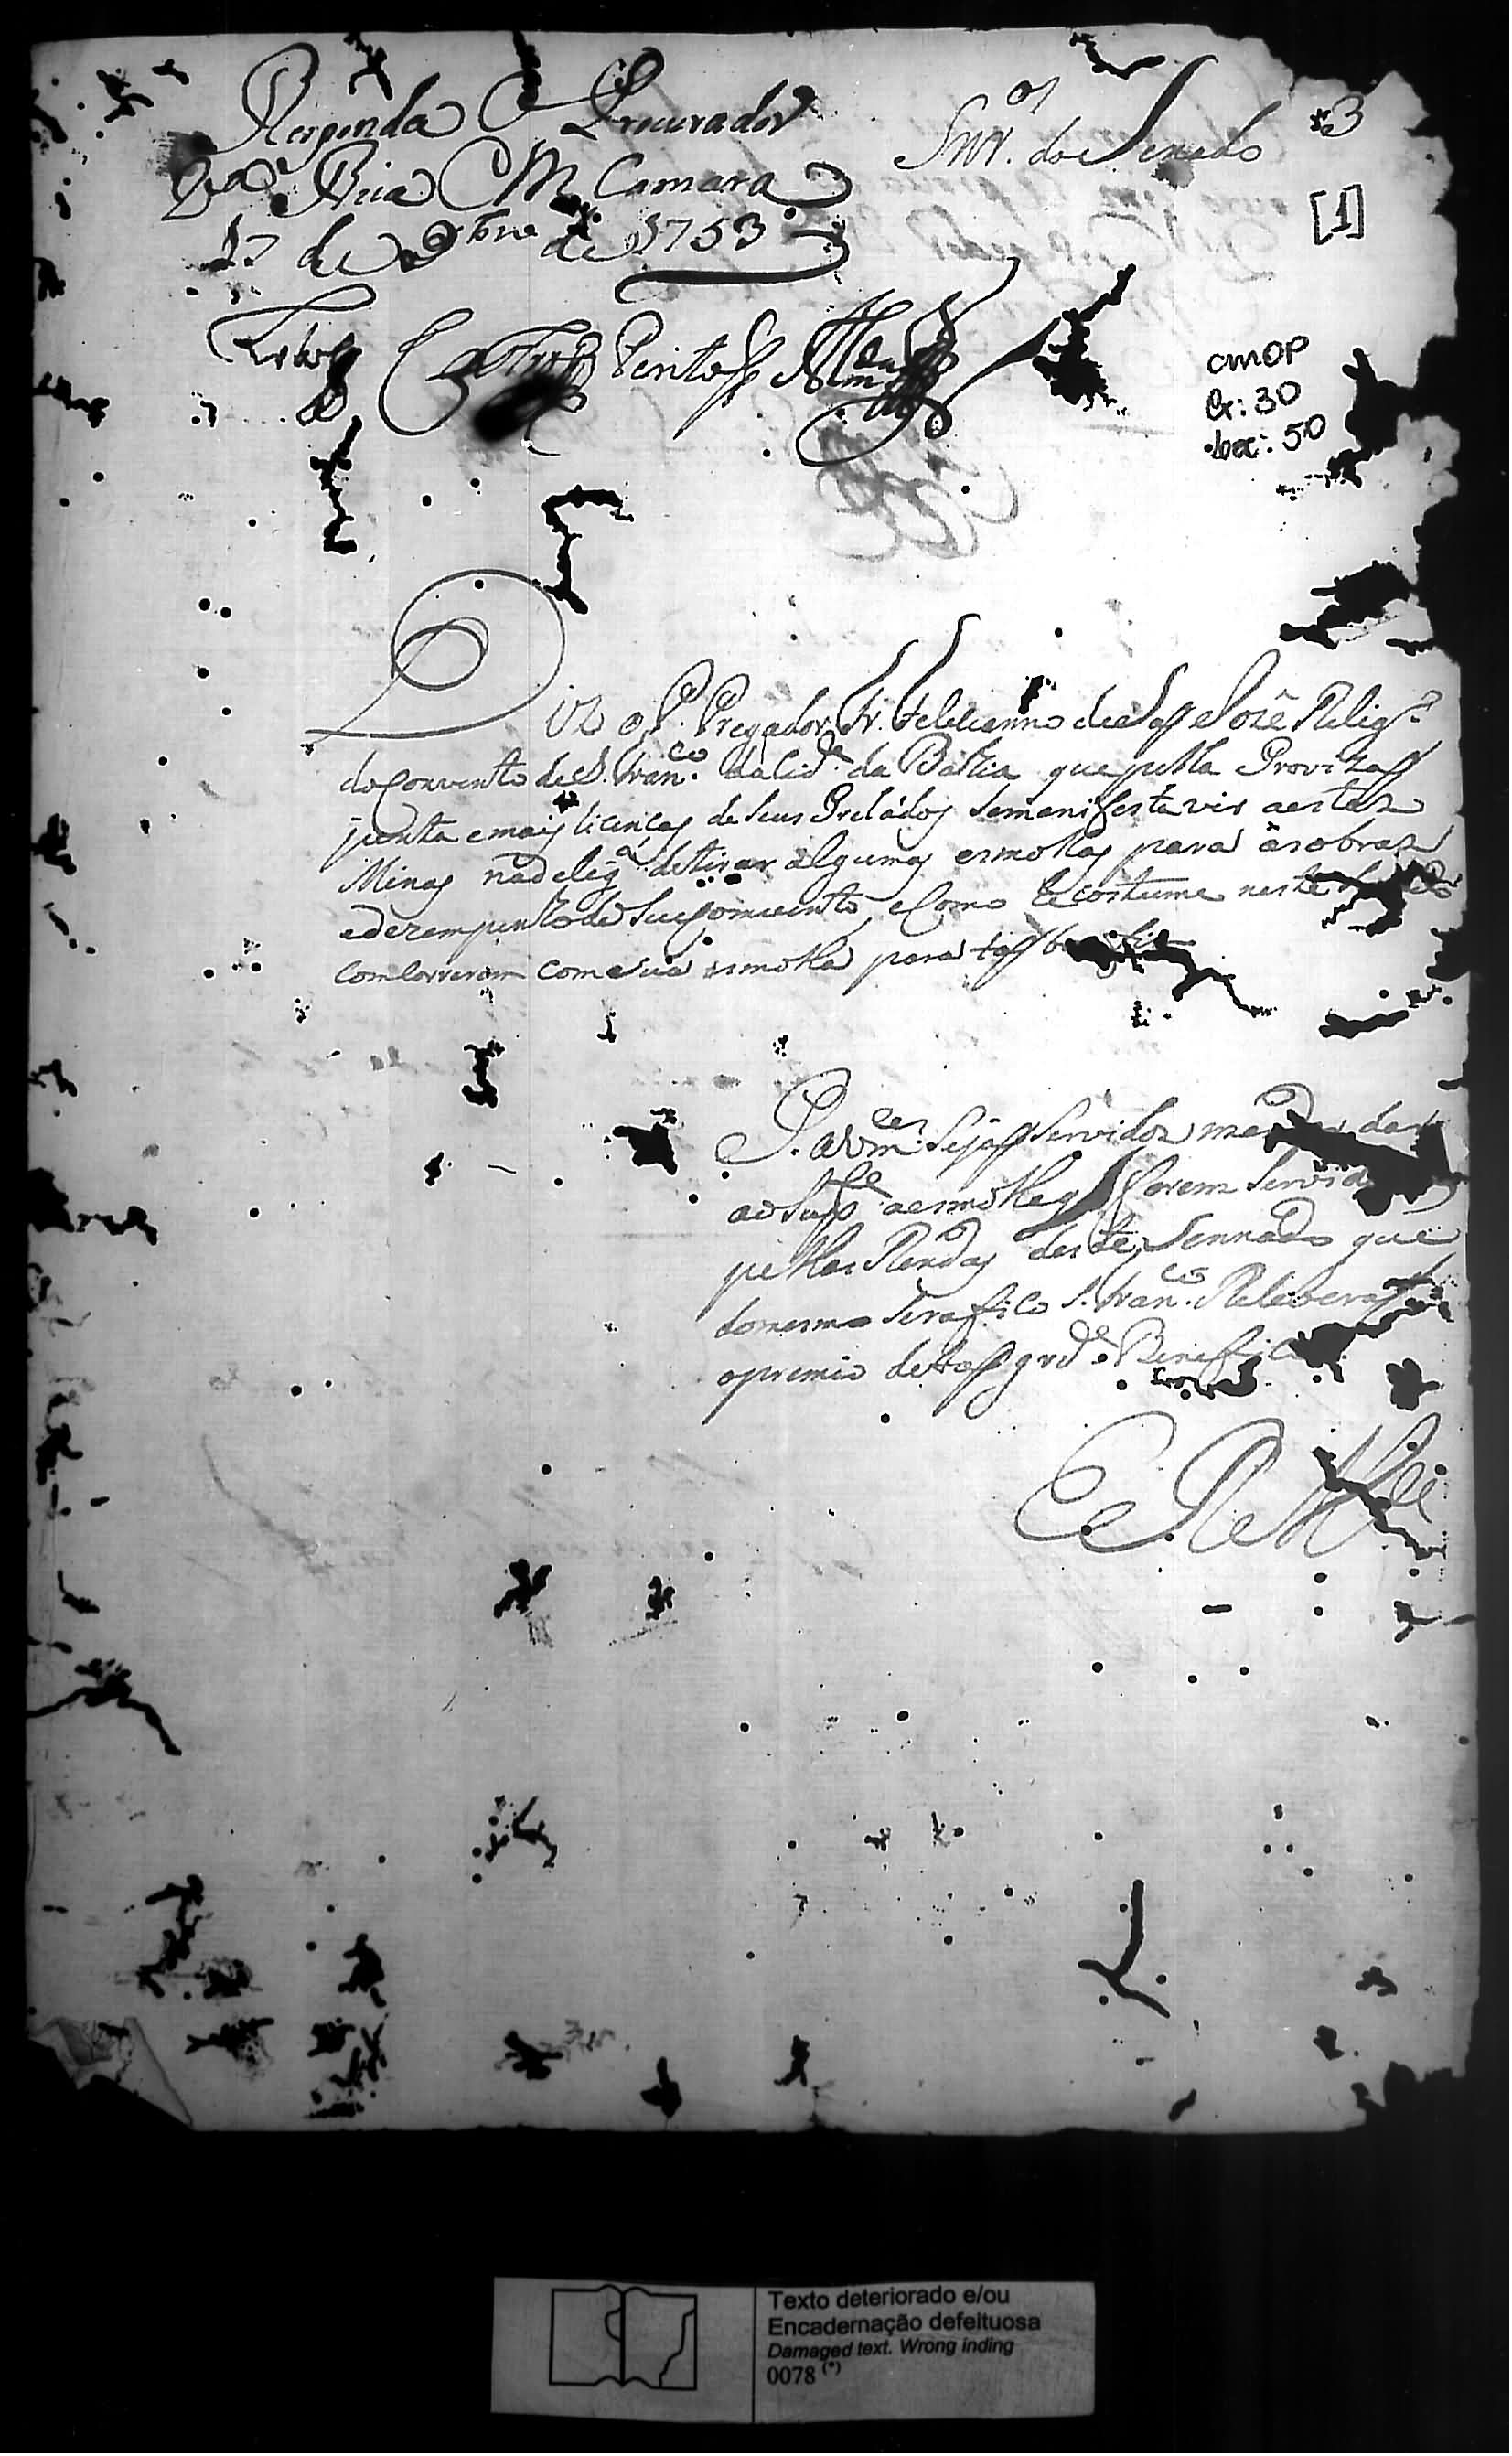 Responda o Procurador
Rica em Camara
17 de 9bre de 1753
Snr.es do Senado
3
[1]
CMOP
Cx: 30
Doc: 50
Diz o P. Pregador Fr. Felicianno de São José Relig.o
do convento de S. Fran.co da Cid.e da Bahia que pella Provizão
junta e mais licenças de seus Prelados se manifesta vir a estas
Minas na delig.a de tirar algumas esmollas para as obras
e dezempenho do seu comvento, e como he costume neste
comcorrerem com a sua esmolla para tão
P. a Vm.ces sejão servidos mandar dar
ao Sup.te a esmolla q forem servidos
pellas Rendas deste Sennado que
do mesmo Serafico S. Fran.co Receberão
o premio de tão grd.e Beneficio
E. R. M.ce
Texto deteriorado e/ou
Encadernação defeituosa
Damaged text. Wrong inding
0078 (*)